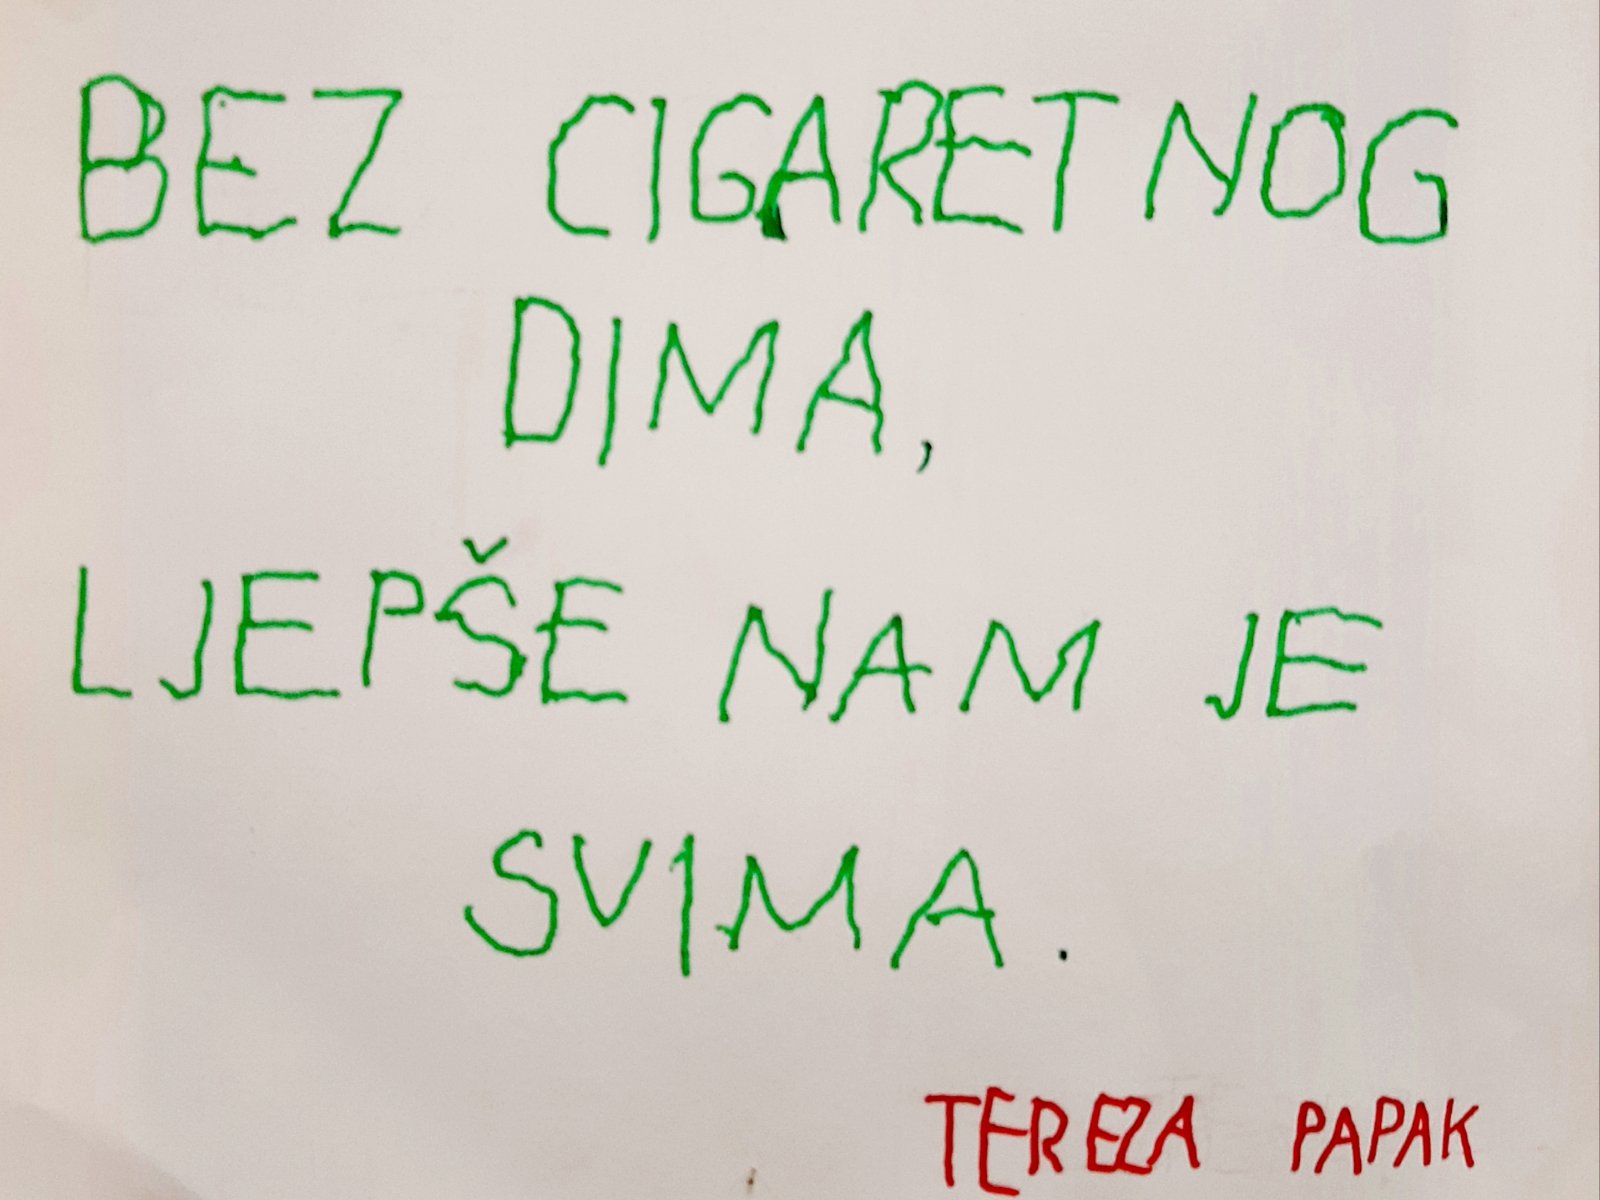 BEZ CIGARETNOG
DIMA,
LJEPŠE NAM JE
SVIMA.
TEREZA PAPAK